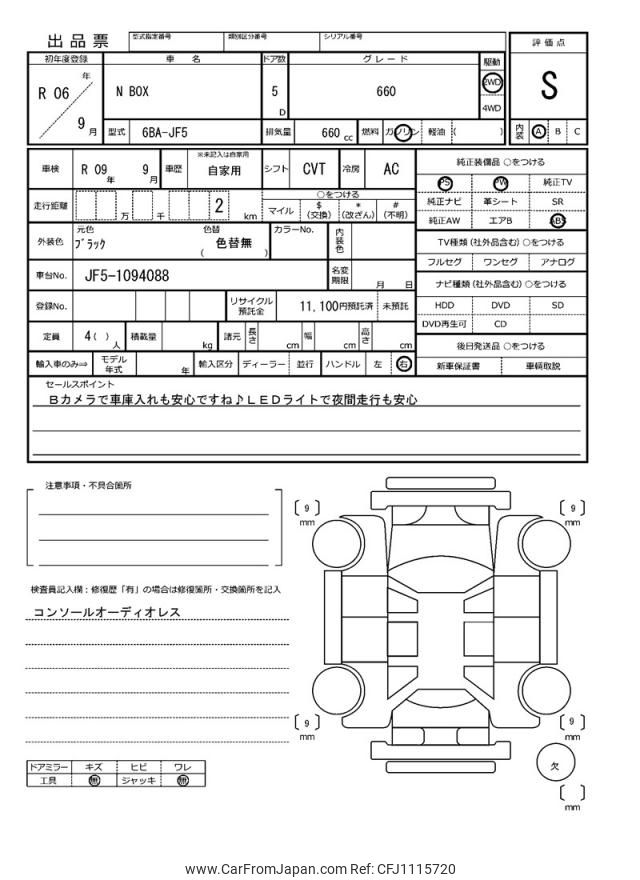 出品票
型式指定番号 類別区分番号 シリアル番号
評価点
S
内装 A B C
初年度登録 車名 ドア数 グレード 駆動
R 06 年 9 月
N BOX
5 D
660
2WD
4WD
型式 6BA-JF5 排気量 660 cc 燃料 ガソリン 軽油 ( )
車検 R 09 年 9 月 車歴 ※未記入は自家用 自家用 シフト CVT 冷房 AC
走行距離 万 千 2 km
○をつける
マイル $(交換) *(改ざん) #(不明)
外装色 元色 ブラック 色替 ( 色替無 ) カラーNo. 内装色
車台No. JF5-1094088 名変期限 月 日
登録No. リサイクル預託金 11,100円預託済 未預託
定員 4( )人 積載量 kg 諸元 長さ cm 幅 cm 高さ cm
輸入車のみ⇒ モデル年式 年 輸入区分 ディーラー 並行 ハンドル 左 右
純正装備品 ○をつける
PS PW 純正TV
純正ナビ 革シート SR
純正AW エアB ABS
TV種類(社外品含む)○をつける
フルセグ ワンセグ アナログ
ナビ種類(社外品含む)○をつける
HDD DVD SD
DVD再生可 CD
後日発送品 ○をつける
新車保証書 車輌取説
セールスポイント
Bカメラで車庫入れも安心ですね♪LEDライトで夜間走行も安心
注意事項・不具合箇所
検査員記入欄：修復歴「有」の場合は修復箇所・交換箇所を記入
コンソールオーディオレス
[ 9 ] mm
[ 9 ] mm
[ 9 ] mm
[ 9 ] mm
欠
[ ] mm
ドアミラー キズ ヒビ ワレ
工具 無 ジャッキ 無
www.CarFromJapan.com Ref: CFJ1115720